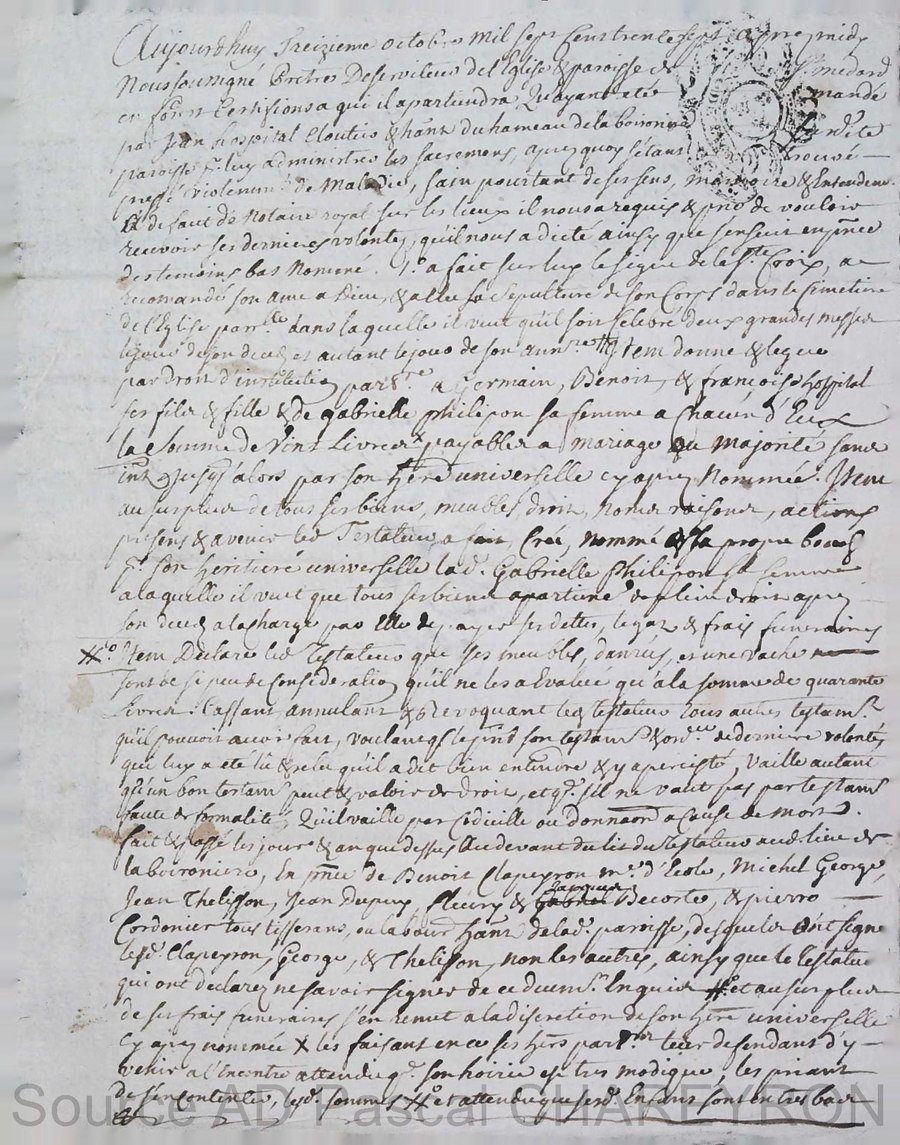 Aujourdhuy treizieme octobre mil sept cens trente sept apres midy
Nous soussigné Pretre Desserviteur de l'Eglise & paroisse de St medard
en forest Certifions a qui il apartiendra Qu'ayant eté mandé
par Jean hospital Cloutier & hant du hameau de la boironiere
paroisse pr luy administrer les sacremens, apres quoy s'etant trouvé
pressé violemmt de Maladie, sain pourtant de ses sens, memoire & Entendemt
A defaut de Notaire royal sur les lieux il nous a requis & prié de vouloir
recevoir ses dernieres volontés, qu'il nous a dicté ainsy que s'ensuit en pnce
des temoins bas Nommé. 1o a fait sur luy le signe de la Ste Croix, a
recomandé son ame a Dieu, & a elu sa sepulture de son Corps dans le Cimetiere
de l'Eglise parlle dans laquelle il veut qu'il soit Celebré deux grandes messes
le jour de son deces et autant le jour de son annre # Item donne & legue
par Droit d'institution par a Germain, Benoit, & françoise hospital
ses fils & fille & de gabrielle philipon sa femme a Chacun d'Eux
la Somme de Vint Livres x payables a mariage ou majorité sans
int jusqu'alors par son here universelle cy apres Nommée. Item
au surplus de tous ses biens, meubles, droits, noms, raisons, actions
presens & a venir led Testateur a fait, Créé, nommé de sa propre bouche
pr son heritiere universelle lad. Gabrielle philipon sa femme
a laquelle il veut que tous ses biens apartiene de plein droit apres
son deces a la charge par Elle de payer ses dettes, legaz & frais funeraires
#o Item Declare led Testateur que ses meubles, danrées, et une vache
sont de si peu de Consideration qu'il ne les a Evalué qu'a la somme de quarante
Livres. Cassant annulant & revoquant led testateur tous autres testamt
qu'il pouvoit avoir fait, voulant q le pnt son testamt & ordce de derniere volonté,
qui luy a eté lû & relu qu'il a dit bien entendre & y a percisté, vaille autant
qu'un bon testamt peut & valoir de droit, et q. s'il ne vaut pas par testamt
faute de formalité, Qu'il vaille par Codicille ou donnaon a Cause de mort.
fait & passé les jour & an que dessus au devant du lit du testateur aud. lieu de
la boironiere, En pnce de Benoit Clapeyron me d'Ecole, Michel George,
Jean Thelisson, Jean Dupuy, fleury & Jacques Decorte, & pierre
Cordonier tous tisserans, ou labours hant de lad. paroisse, desquels ont signé
lesd. Clapeyron, George, & Thelisson, non les autres, ainsy que le testateur
qui ont declarez ne savoir signer de ce duemt Enquis #o et au surplus
de ses frais funeraires s'en remet a la discretion de son here universelle
Cy apres nommée x les faisant en ce ses hers par leur defendant d'y
venir a l'Encontre attendu q. son hoirie est tres modique, les priant
de s'en contenter, lesd. sommes #o et attendu que sesd Enfans sont en tres bas
Source AD Pascal CHAREYRON